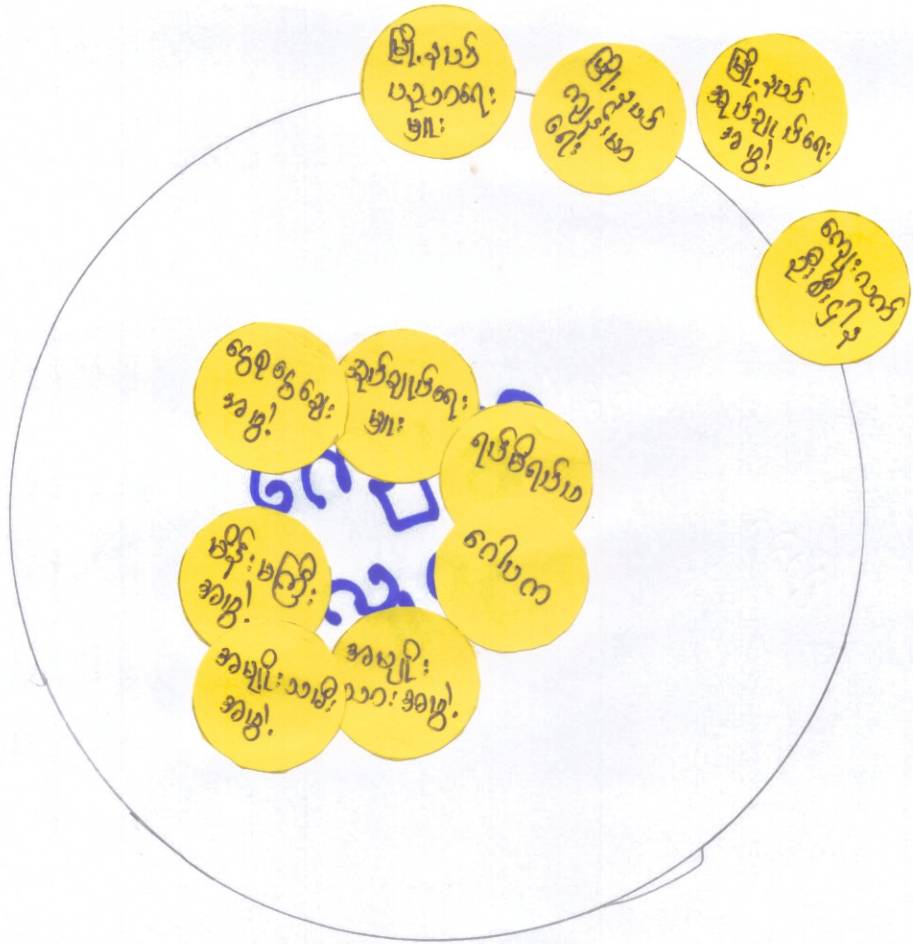 မြို့နယ်
ပညာရေး
မှူး
မြို့နယ်
ကျန်းမာ
ရေး
မြို့နယ်
အုပ်ချုပ်ရေး
အဖွဲ့
ကျေးလက်
ဦးစီးဌာန
ငွေစုငွေချေး
အဖွဲ့
အုပ်ချုပ်ရေး
မှူး
ရပ်မိရပ်ဖ
ဂေါပက
မိန်းမကြီး
အဖွဲ့
အမျိုးသမီး
အဖွဲ့
အမျိုး
သားအဖွဲ့